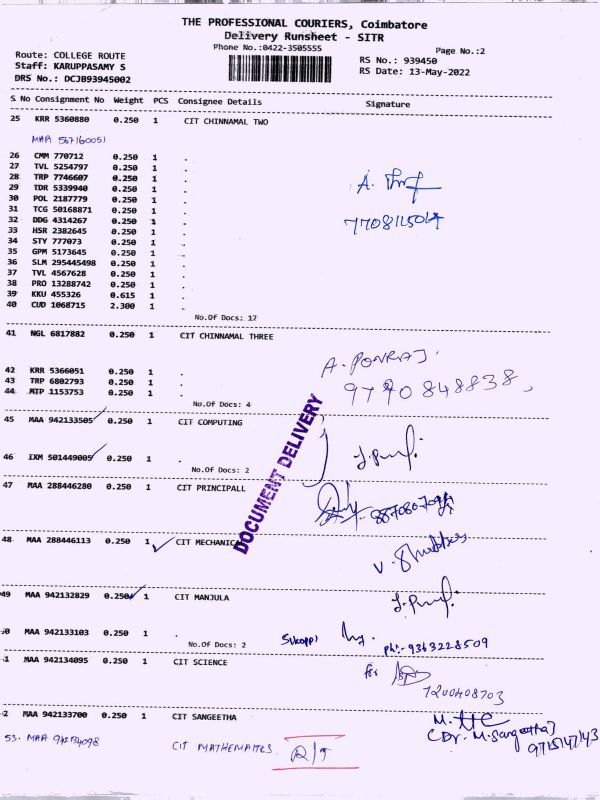 THE PROFESSIONAL COURIERS, Coimbatore
Delivery Runsheet - SITR
Phone No.:0422-3505555
Page No.:2
Route: COLLEGE ROUTE
RS No.: 939450
Staff: KARUPPASAMY S
RS Date: 13-May-2022
DRS No.: DCJB93945002
S No Consignment No Weight PCS Consignee Details Signature
25 KRR 5360880 0.250 1 CIT CHINNAMAL TWO
MAA 567160051
26 CMM 770712 0.250 1 .
27 TVL 5254797 0.250 1 .
28 TRP 7746607 0.250 1 .
29 TDR 5339940 0.250 1 .
30 POL 2187779 0.250 1 .
31 TCG 50168871 0.250 1 .
32 DDG 4314267 0.250 1 .
33 HSR 2382645 0.250 1 .
34 STY 777073 0.250 1 .
35 GPM 5173645 0.250 1 .
36 SLM 295445498 0.250 1 .
37 TVL 4567628 0.250 1 .
38 PRO 13288742 0.250 1 .
39 KKU 455326 0.615 1 .
40 CUD 1068715 2.300 1 .
No.Of Docs: 17
41 NGL 6817882 0.250 1 CIT CHINNAMAL THREE
A. PONRAJ.
42 KRR 5366051 0.250 1 .
43 TRP 6802793 0.250 1 .
9790848838,
44 MTP 1153753 0.250 1 .
No.Of Docs: 4
45 MAA 942133505 0.250 1 CIT COMPUTING
46 IXM 501449005 0.250 1 .
No.Of Docs: 2
DOCUMENT DELIVERY
47 MAA 288446280 0.250 1 CIT PRINCIPALL
48 MAA 288446113 0.250 1 CIT MECHANICAL
49 MAA 942132829 0.250 1 CIT MANJULA
50 MAA 942133103 0.250 1 .
No.Of Docs: 2
ph:- 9363228509
51 MAA 942134095 0.250 1 CIT SCIENCE
for
7200408703
52 MAA 942133700 0.250 1 CIT SANGEETHA
(Dr. M.Sangeetha)
9715147143
53. MAA 942134098 CIT MATHEMATICS.